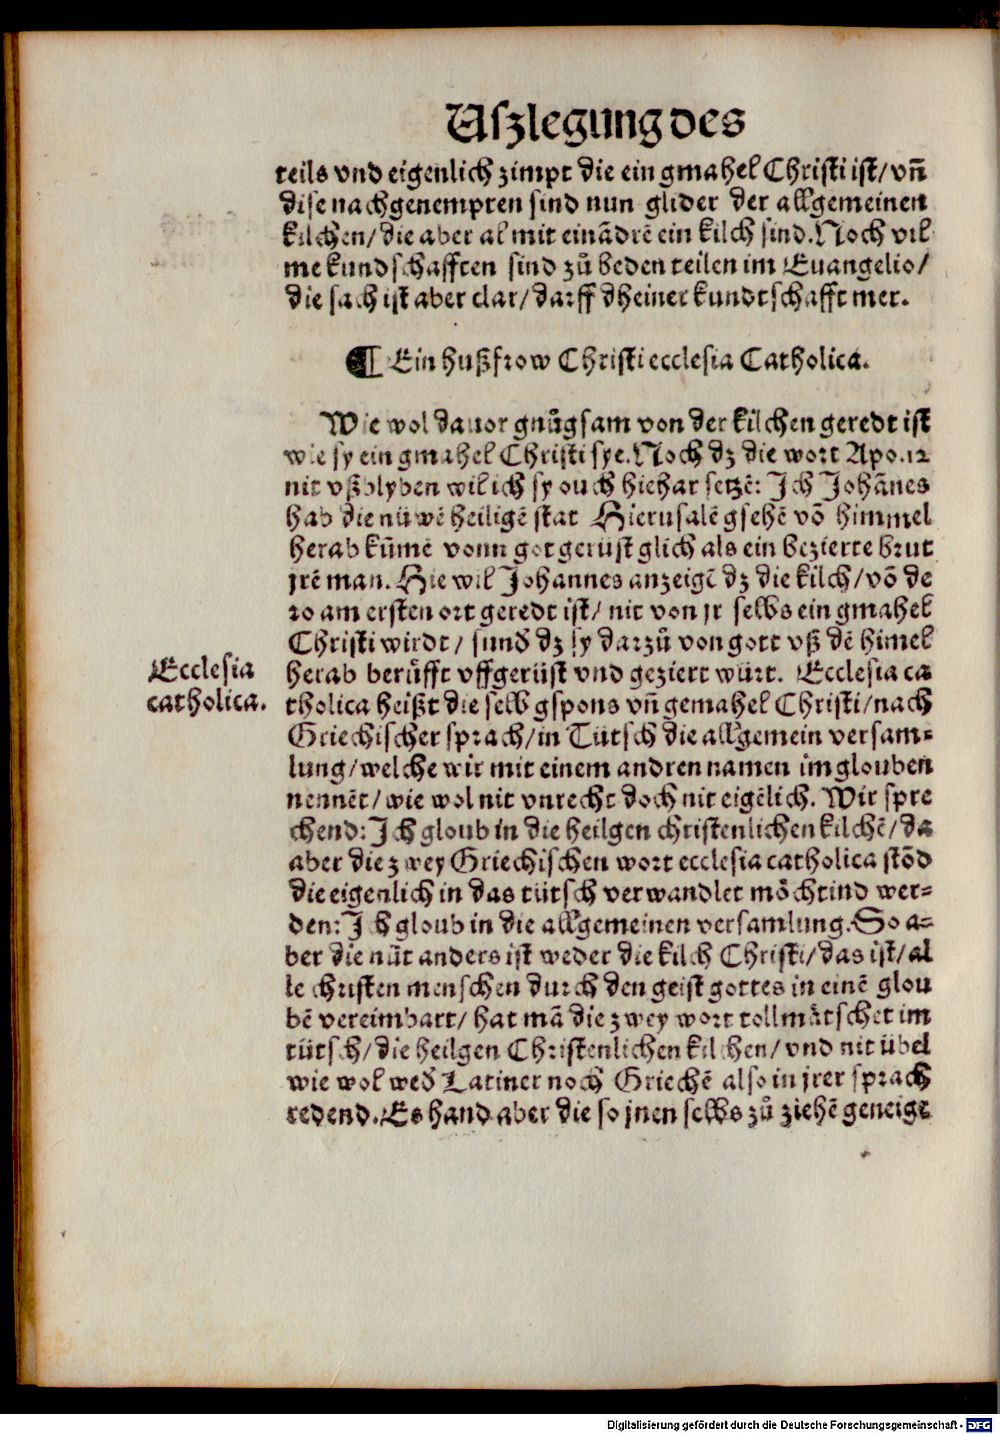 Uſzlegung des
teils vnd eigenlich zimpt die ein gmahel Chriſti iſt/ vñ
diſe nachgenempten ſind nun glider der allgemeinen
kilchen/ die aber al mit einãdrẽ ein kilch ſind. Noch vil
me kundſchafften ſind zů beden teilen im Euangelio/
die ſach iſt aber clar/ darff dheiner kundtſchafft mer.
¶ Ein hußfrow Chriſti eccleſia Catholica.
Wie wol dauor gnůgſam von der kilchen geredt iſt
wie ſy ein gmahel Chriſti ſye. Noch dz die wort Apo.12
nit vßblyben wil ich ſy ouch hiehar ſetzẽ: Ich Johãnes
hab die nüwẽ heiligẽ ſtat Hieruſalẽ gſehẽ võ himmel
herab kũmẽ vonn got gerüſt glich als ein bezierte brut
jrẽ man. Hie wil Johannes anzeigẽ dz die kilch/ võ de
ro am erſten ort geredt iſt/ nit von jr ſelbs ein gmahel
Chriſti wirdt/ ſund̃ dz ſy darzů von gott vß dẽ himel
herab berůfft vffgerüſt vnd geziert würt. Eccleſia ca
tholica heißt die ſelb gſpons vñ gemahel Chriſti/ nach
Griechiſcher ſprach/ in Tütſch die allgemein verſam⸗
lung/ welche wir mit einem andren namen im glouben
nennẽt/ wie wol nit vnrecht doch nit eigẽlich. Wir ſpre
chend: Ich gloub in die heilgen chriſtenlichen kilchẽ/ da
aber die zwey Griechiſchen wort eccleſia catholica ſtõd
die eigenlich in das tütſch verwandlet möchtind wer⸗
den: Ich gloub in die allgemeinen verſamlung. So a⸗
ber die nüt anders iſt weder die kilch Chriſti/ das iſt/ al
le chriſten menſchen durch den geiſt gottes in einẽ glou
bẽ vereimbart/ hat mã die zwey wort tollmätſchet im
tütſch/ die heilgen Chriſtenlichen kilchen/ vnd nit übel
wie wol wed̃ Latiner noch Griechẽ alſo in jrer ſprach
redend. Es hand aber die ſo jnen ſelbs zů ziehẽ geneigt
Eccleſia
catholica.
Digitalisierung gefördert durch die Deutsche Forschungsgemeinschaft - DFG